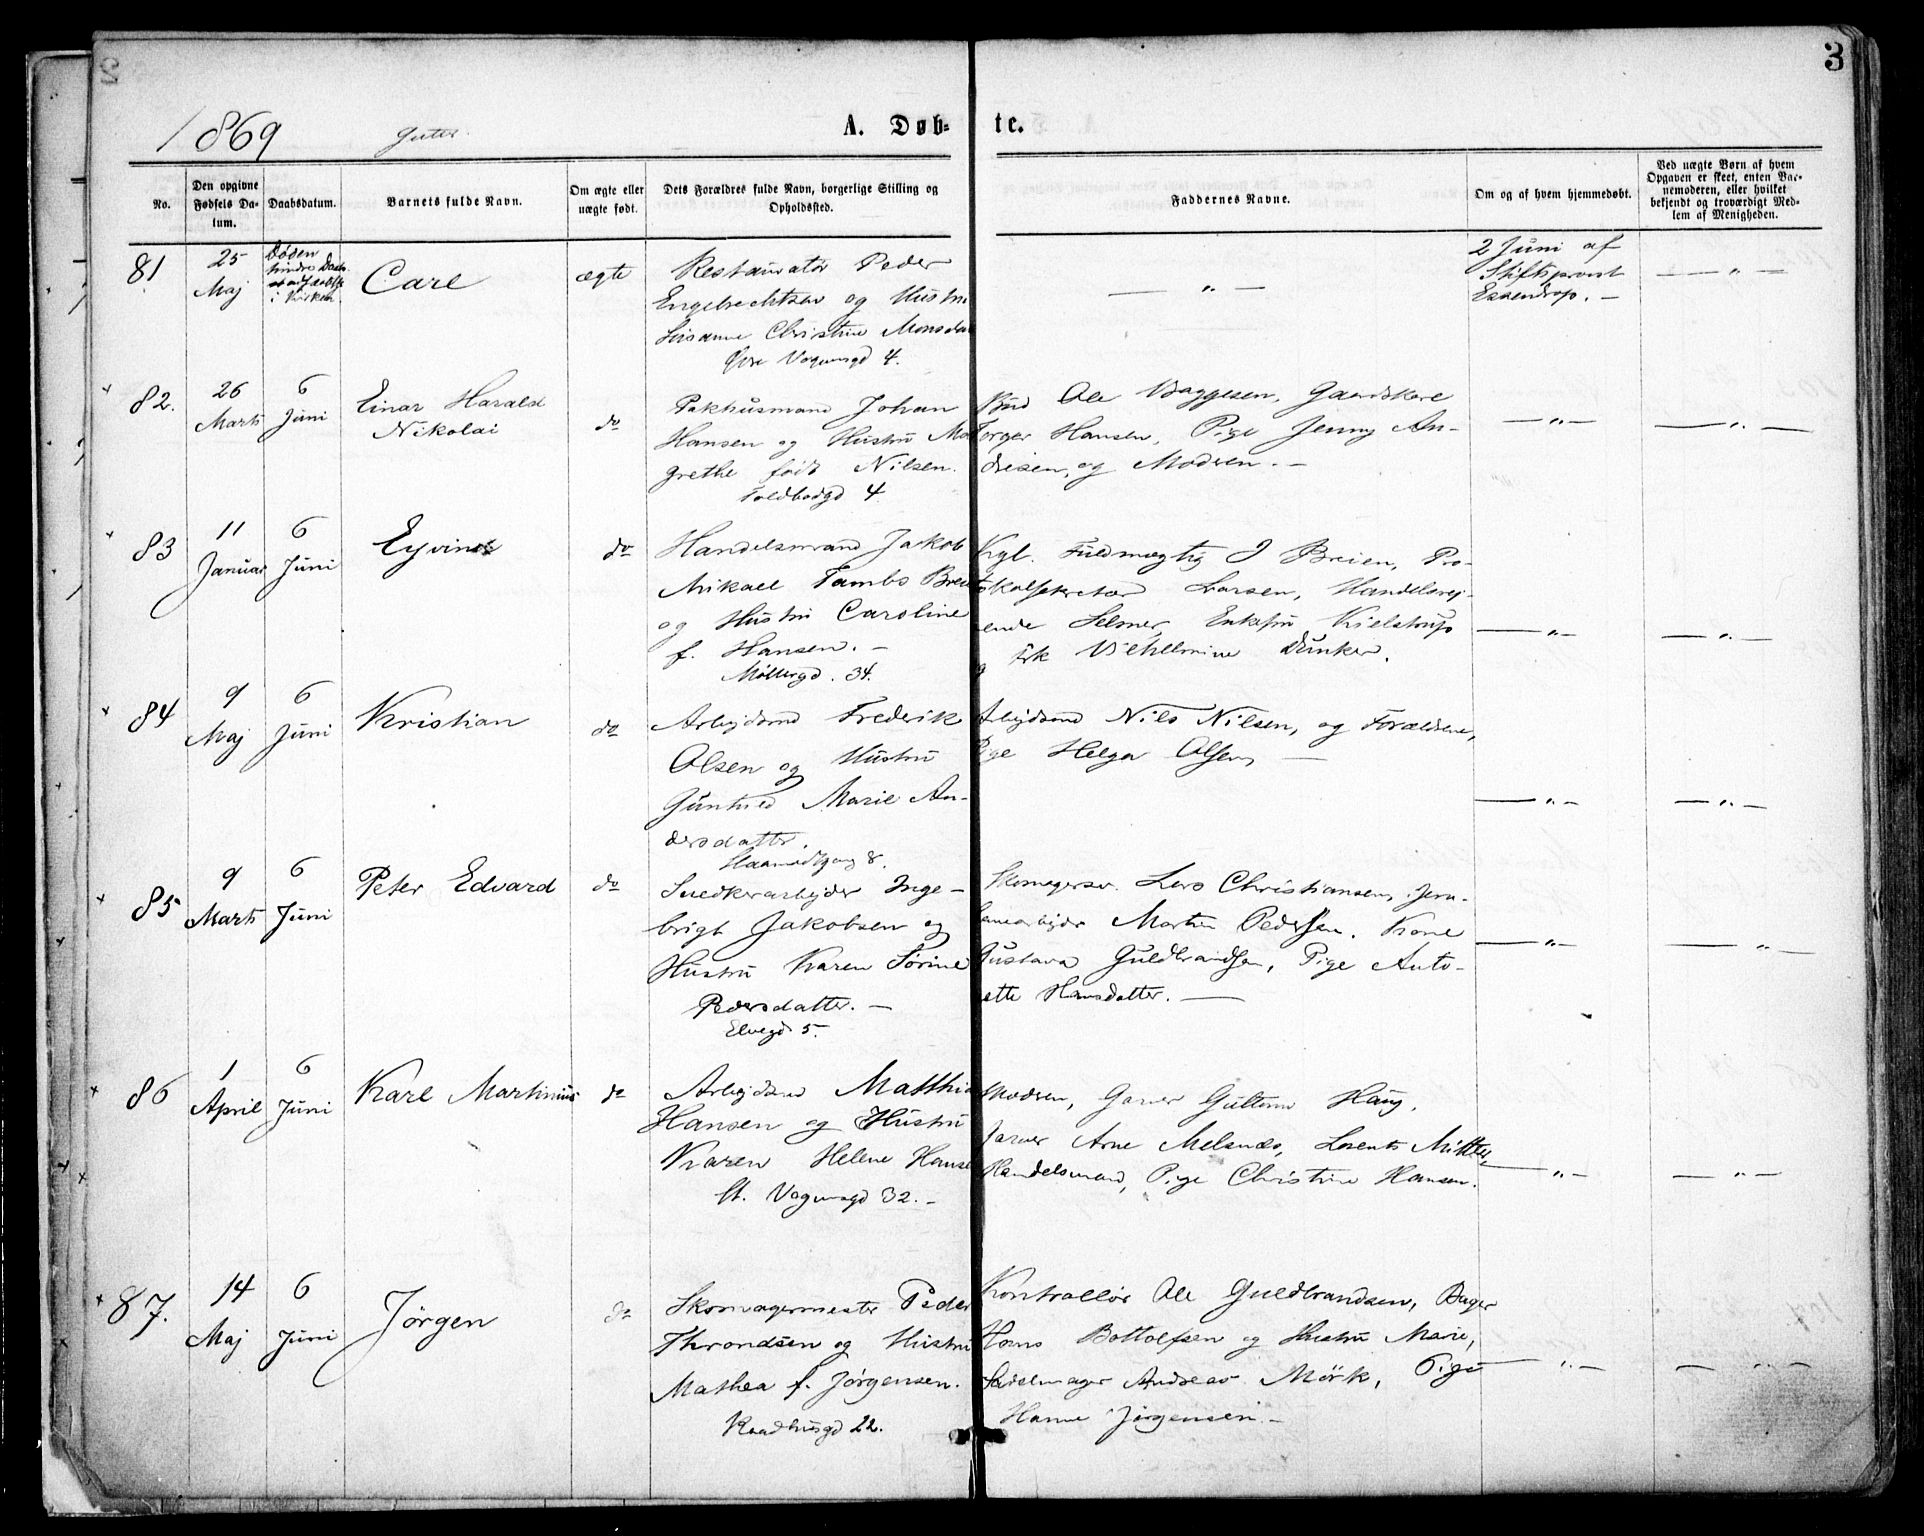 3
1869 Gutter
A. Døb- te.
No.
Den opgivne Fødsels Datum.
Daabsdatum.
Barnets fulde Navn.
Om ægte eller uægte født.
Dets Forældres fulde Navn, borgerlige Stilling og Opholdssted.
Faddernes Navne.
Om og af hvem hjemmedøbt.
Ved uægte Børn af hvem Opgaven er skeet, enten Barnemoderen, eller hvilket bekjendt og troværdigt Medlem af Menigheden.
81
25 Maj
Døden
i Kirken
Carl
ægte
Restauratør Peder
Engebrechtsen og Hustru
Susanne Christine
Øvre Vognmgd 4.
— " —
2 Juni af
Stiftsprovst
Essendrop. —
— " —
82.
26 Marts
6 Juni
Einar Harald
Nikolai
do
Pakhusmand Johan
Hansen og Hustru Ma
grethe født Nilsen.
Toldbodgd 4
Bud Ole Baggesen, Gaardskarl
Torger Hansen, Pige Jenny An-
dresen, og Modren. —
— " —
— " —
83
11 Januar
6 Juni
Eyvind
do
Handelsmand Jakob
Mikael Tambs Brei
og Hustru Caroline
f. Hansen. —
Møllergd. 34.
Kgl. Fuldmægtig J Breien, Pro-
tokolsekretær Larsen, Handelsrej-
sende Selmer, Enkefru Kielstrup
og Frk Vilhelmine Dunker.
— " —
— " —
84
9 Maj
6 Juni
Kristian
do
Arbejdsmd Frederik
Olsen og Hustru
Marie An-
dersdatter.
Arbejdsmd Nils Nilsen, og Forældrene,
Pige Helga Olsen, —
— " —
— " —
85
9 Marts
6 Juni
Peter Edvard
do
Snedkerarbejder Inge-
brigt Jakobsen og
Hustru Karen Sørine
Pedersdatter. —
Elvegd 5.
Skomagersv. Lars Christiansen, Jern-
banearbejder Martin Pedersen. Kone
Gustava Guldbrandsen, Pige Anto-
ette Hansdatter. —
— " —
— " —
86
1 April
6 Juni
Karl Martinius
do
Arbejdsmd Matthia
Hansen og Hustru
Karen Helene Hanse
St. Vognmgd 32. —
Modren, Garver Haug,
Garver Arne Melsnæs, Lorents
Handelsmand, Pige Christine Hansen.
— " —
— " —
87.
14 Maj
6 Juni
Jørgen
do
Skomagermester Peder
Throndsen og Hustru
Mathea f. Jørgensen.
Raadhusgd 22.
Kontrollør Ole Guldbrandsen, Bager
Hans Bottolfsen og Hustru Marie,
Sadelmager Andreas Mörk, Pige
Hanne Jørgensen. —
— " —
— " —